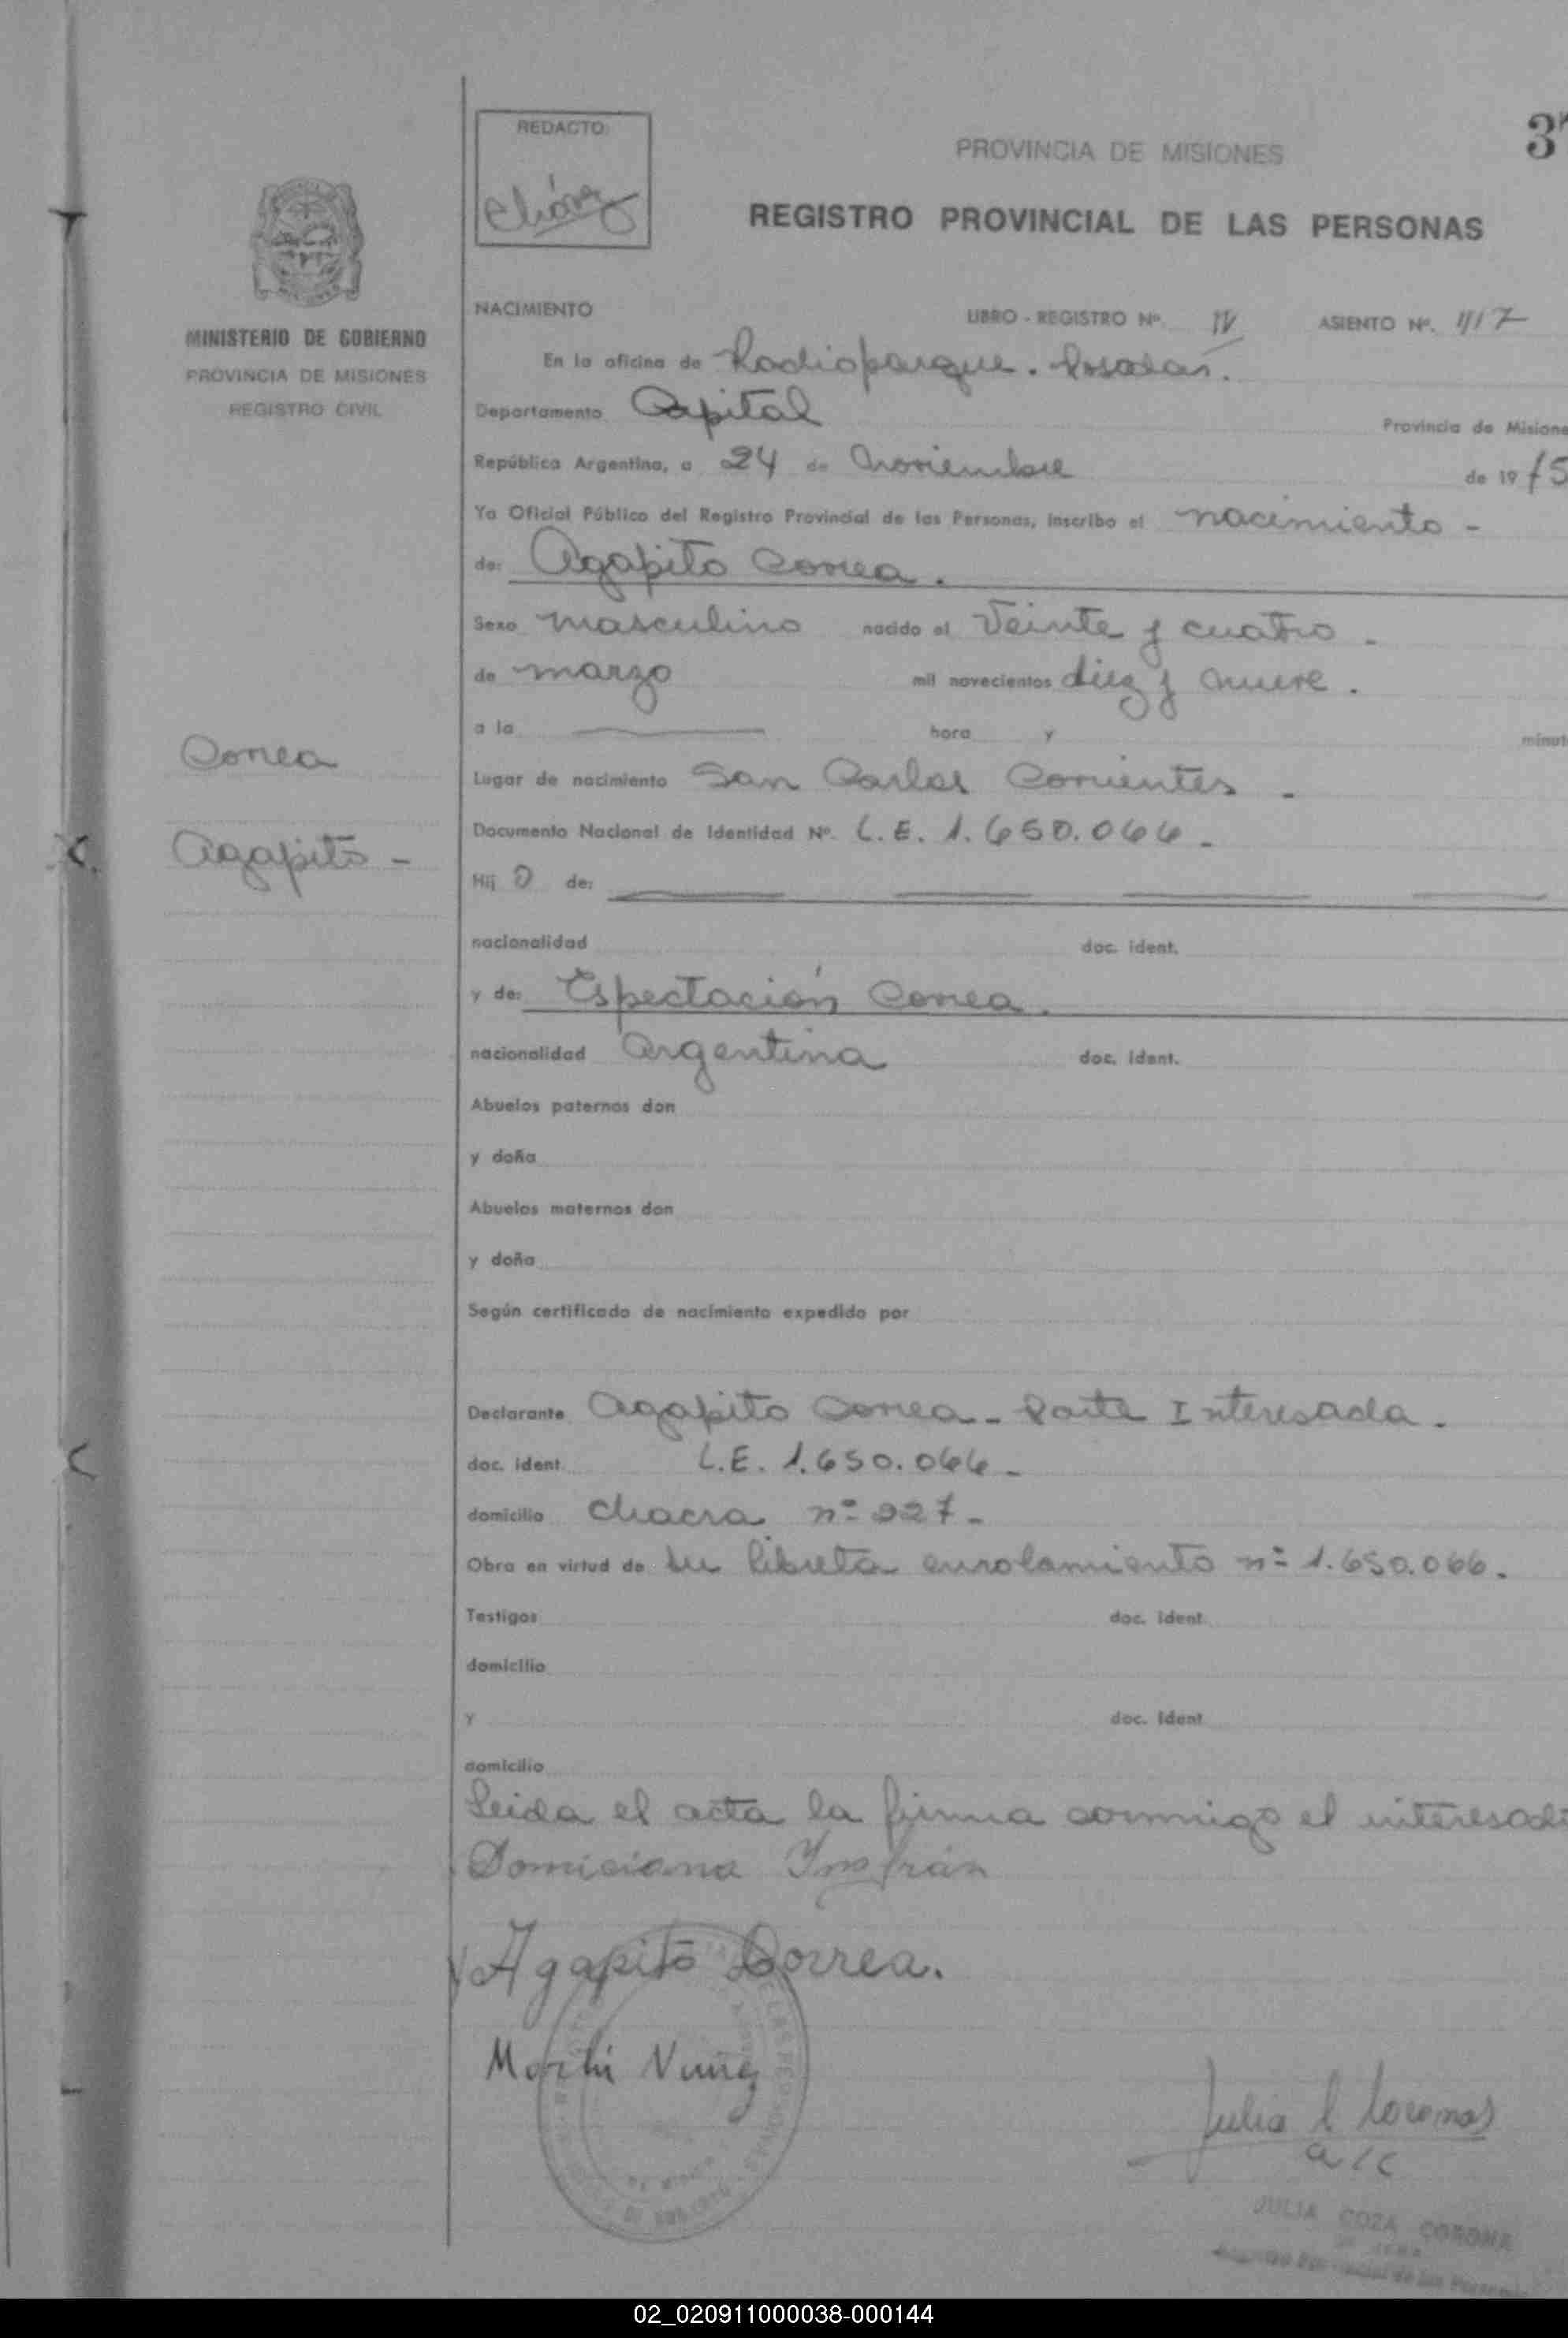 REDACTO:
Cháves
PROVINCIA DE MISIONES
REGISTRO PROVINCIAL DE LAS PERSONAS
MINISTERIO DE GOBIERNO
PROVINCIA DE MISIONES
REGISTRO CIVIL
NACIMIENTO LIBRO - REGISTRO Nº. IV ASIENTO Nº. 417
En la oficina de Radioparque. Posadas.
Departamento Capital Provincia de Misione
República Argentina, a 24 de Noviembre de 19 75
Yo Oficial Público del Registro Provincial de las Personas, inscribo el nacimiento -
de: Agapito Correa.
Sexo masculino nacido el Veinte y cuatro -
de marzo mil novecientos diez y nueve.
a la hora y minut
Correa
Lugar de nacimiento San Carlos Corrientes -
Documento Nacional de Identidad Nº. L.E. 1.650.066 -
Agapito -
Hij o de:
nacionalidad doc. ident.
y de: Espectación Correa.
nacionalidad Argentina doc. ident.
Abuelos paternos don
y doña
Abuelos maternos don
y doña
Según certificado de nacimiento expedido por
Declarante Agapito Correa - Parte Interesada.
doc. ident. L.E. 1.650.066 -
domicilio chacra nº 227 -
Obra en virtud de su libreta enrolamiento nº 1.650.066.
Testigos doc. ident.
domicilio
y doc. ident.
domicilio
Leida el acta la firma conmigo el interesado
Domiciana Insfrán
Agapito Correa.
Martín Nuñez
Julia C Coronas
a/c
JULIA COZA CORONA
Registro Provincial de las Personas
02_020911000038-000144